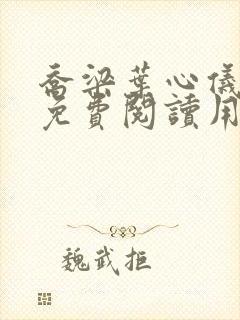 喬梁葉心儀
免費閱讀用
魏武拒